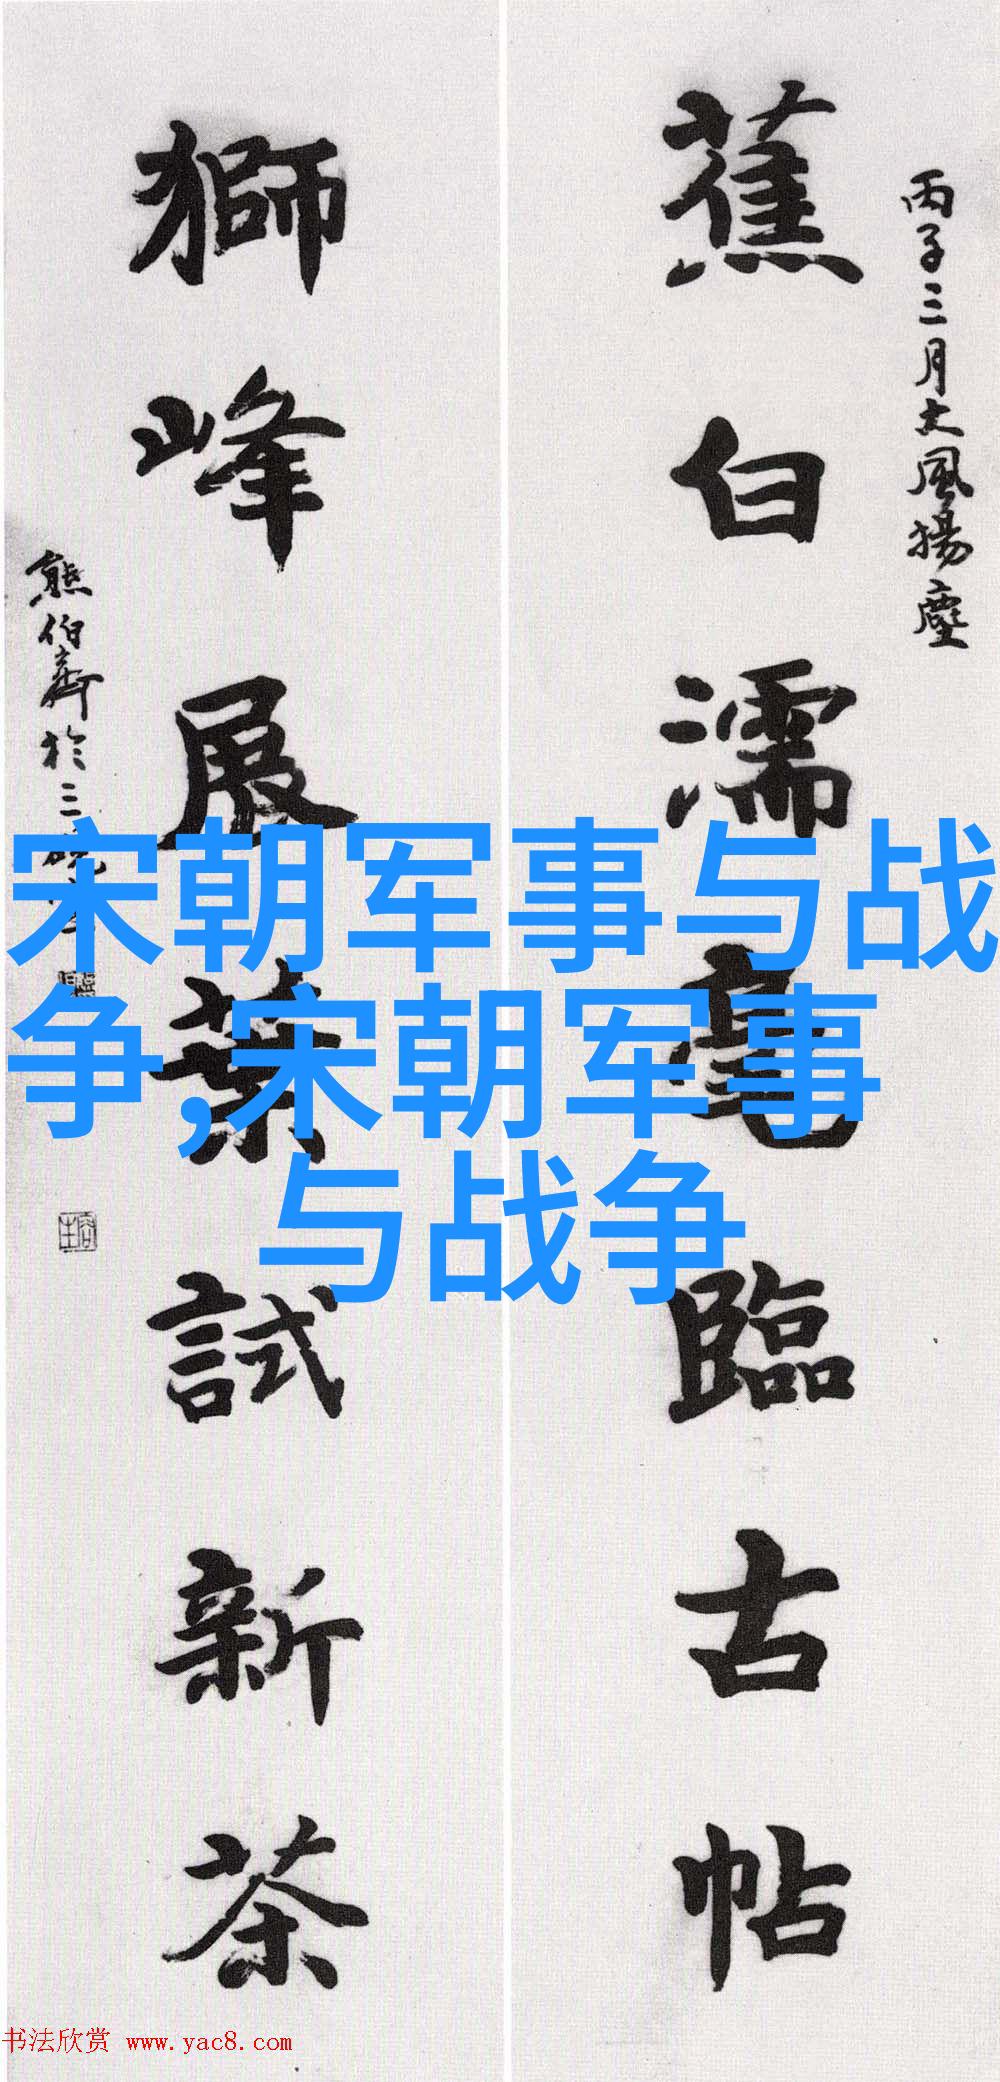 丙子三月大風揚塵
蕉白濡毫臨古帖
獅峰展葉試新茶
熊伯齊於三
宋朝军事与战
争,宋朝军事
与战争
书法欣赏 www.yac8.com